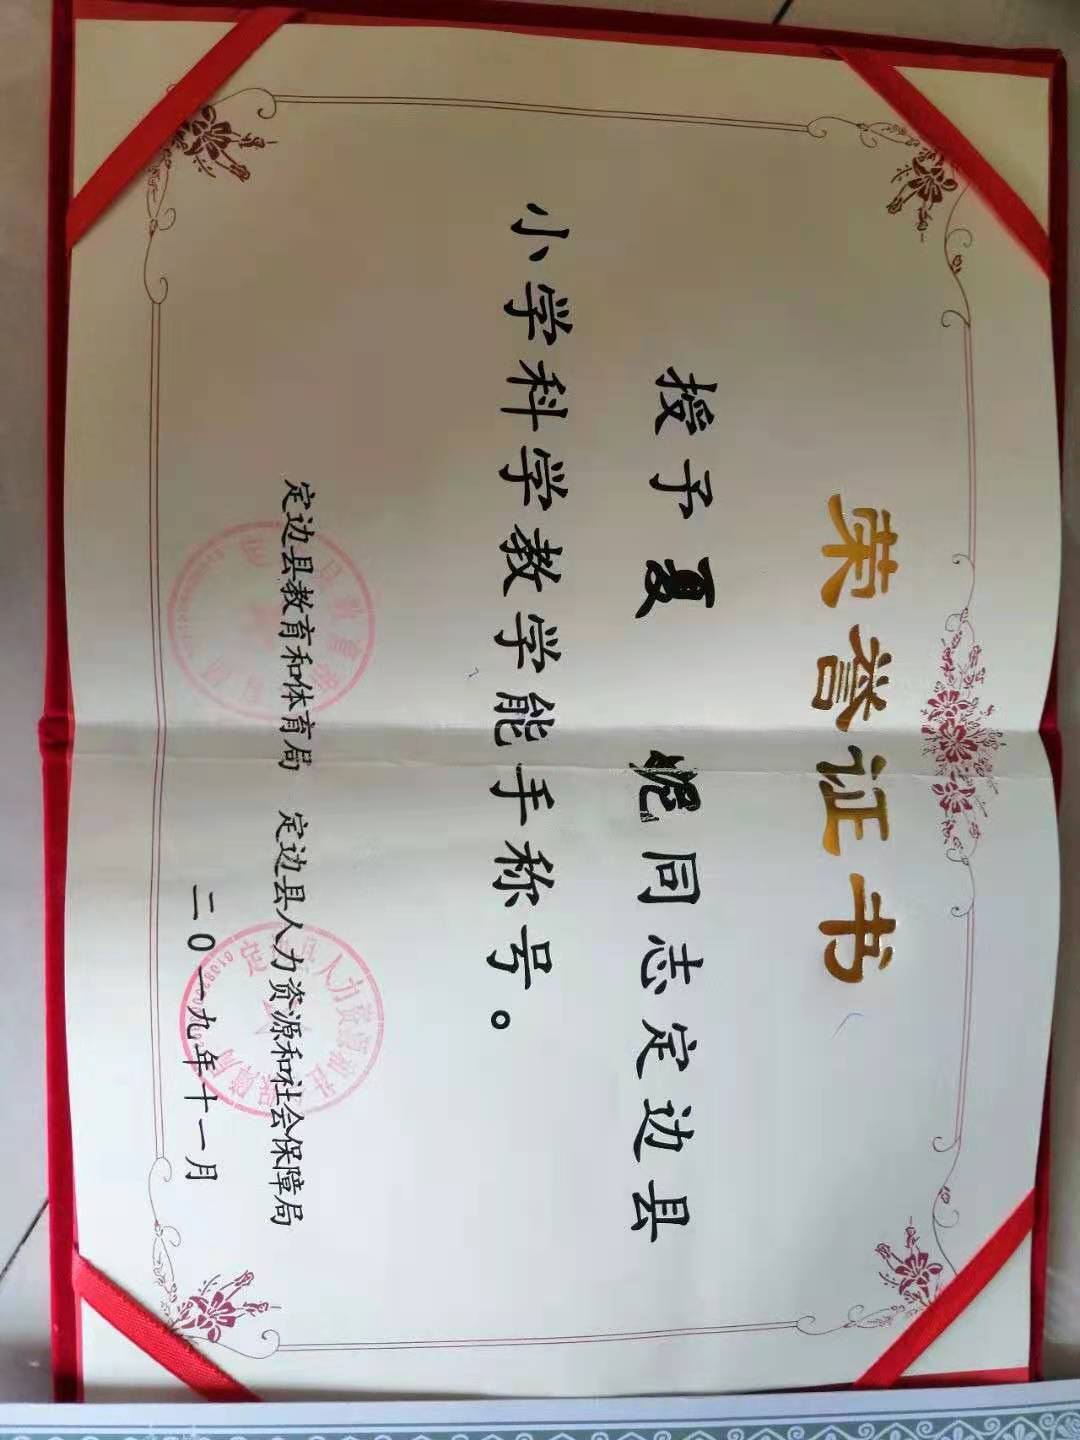 荣誉证书
授予夏 妮同志定边县
小学科学教学能手称号。
定边县教育和体育局 定边县人力资源和社会保障局
二0一九年十一月